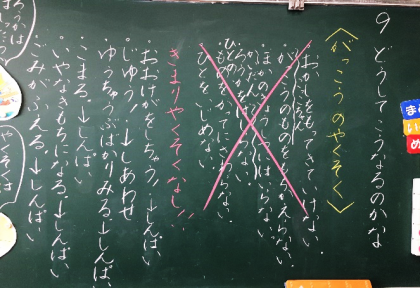 9 どうしてこうなるのかな
〈がっこうのやくそく〉
おかしをもってきてはいけない。
がっこうのものをもちかえらない。
ほかの
はいらない。
ひとのものをかってにとらない。
ひとをいじめない。
きまりやくそくなし!!
おおけがをしちゃう。↓しんぱい
じゆう!↓しあわせ
ゆうちゅうぶばかりみる↓しんぱい
こまる。↓しんぱい
いやなきもちになる↓しんぱい
ごみがふえる。↓しんぱい
ろうかは
やくそくは
ま
い
め